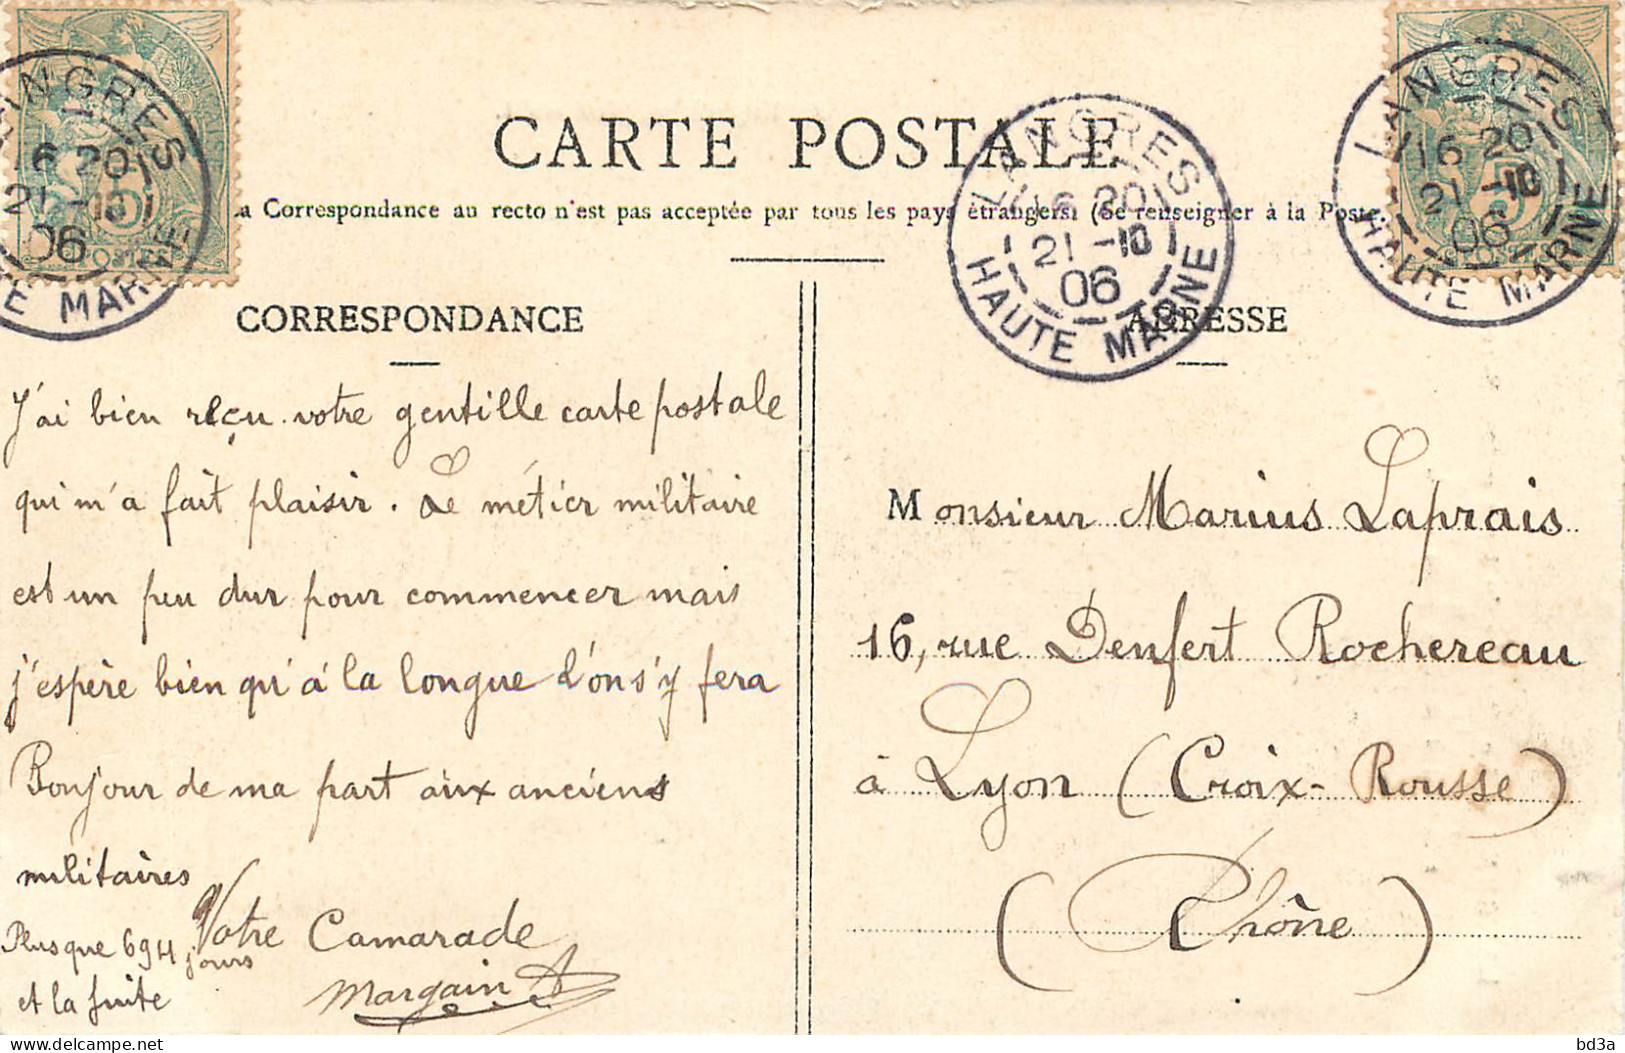 CARTE POSTALE
a Correspondance au recto n'est pas acceptée par tous les pays étrangers. (Se renseigner à la Poste.
LANGRES
16 20
21 -10
06
HAUTE MARNE
LANGRES
16 20
21 -10
06
HAUTE MARNE
5
POSTES
INGRES
16 20
21 -10
06
TE MARNE
5
POSTES
CORRESPONDANCE
J'ai bien reçu votre gentille carte postale
qui m'a fait plaisir. Le métier militaire
est un peu dur pour commencer mais
j'espère bien qu'à la longue l'on s'y fera
Bonjour de ma part aux anciens
militaires
Votre Camarade
Margain A
Plus que 694 jours
et la fuite
ADRESSE
Monsieur Marius Laprais
16, rue Denfert Rochereau
à Lyon (Croix-Rousse)
(Rhône)
bd3a